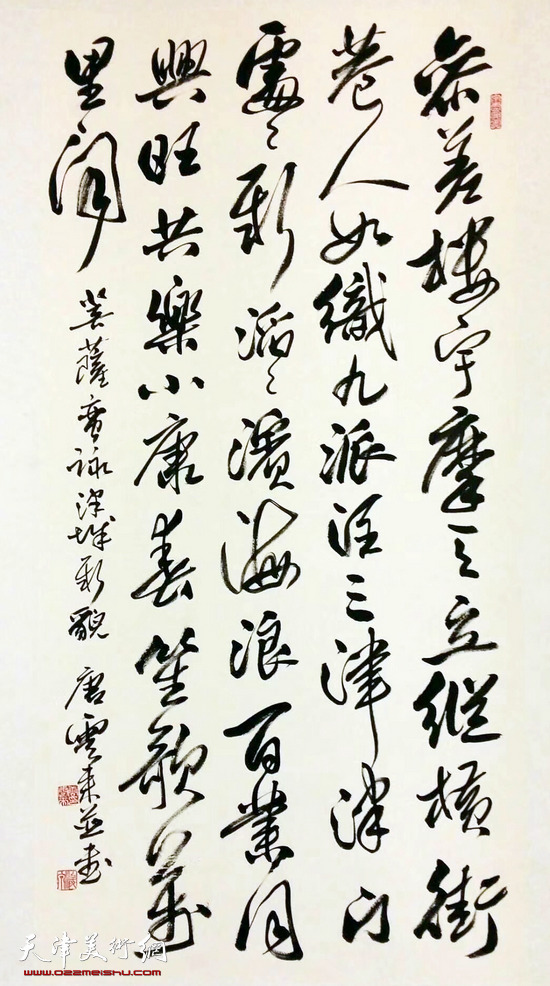 參差樓宇摩天立縱橫街
巷人如織九派注三津津門
處々新滔々濱海浪百業同
興旺共樂小康春笙歌萬
里聞
菩薩蠻詠津城新貌 唐雲來並書
天津美術網
www.022meishu.com